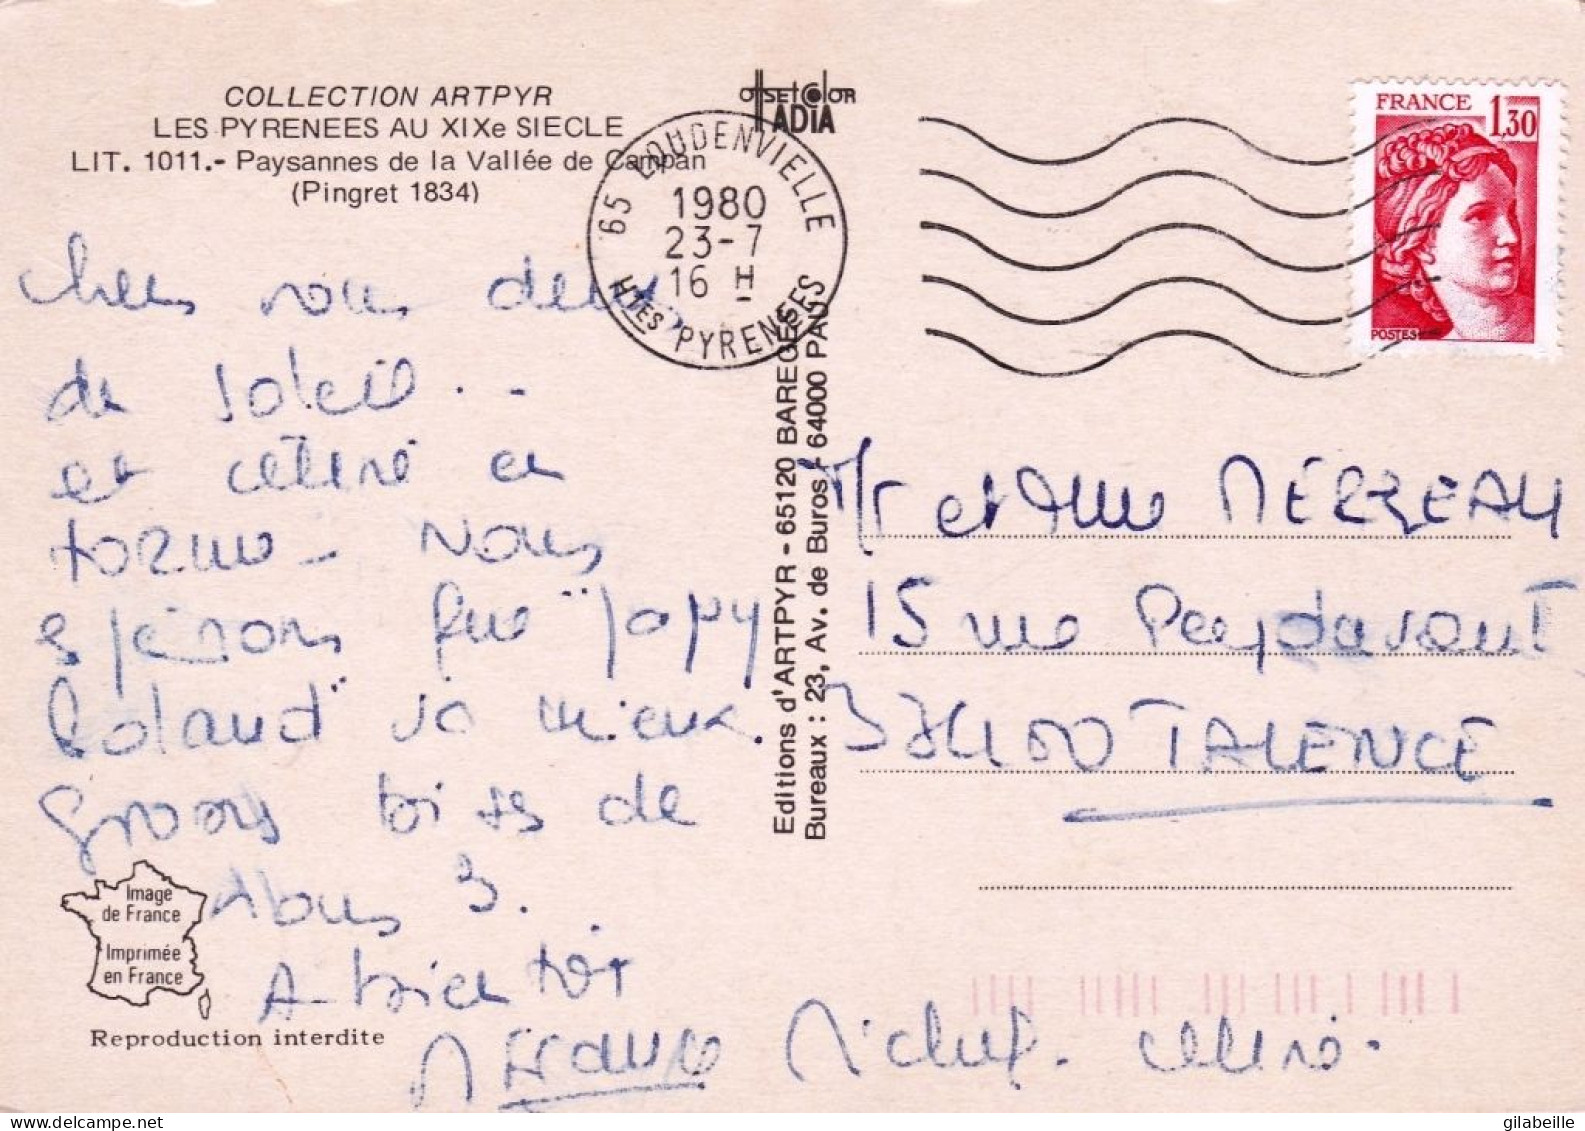 COLLECTION ARTPYR
LES PYRENEES AU XIXe SIECLE
LIT. 1011.- Paysannes de la Vallée de Campan
(Pingret 1834)
offset color
ADIA
65 LOUDENVIELLE
1980
23-7
16 H
HTES PYRENEES
FRANCE 1,30
POSTES
vous deux
de soleil..
et en
forme - Nous
espérons que "papy
Roland" va mieux.
Gross bises de
nous 3.
A bientôt
Michel.
Mr et Mme MERZEAU
15 rue Peydavant
33400 TALENCE
Editions d'ARTPYR - 65120 BAREGES
Bureaux : 23, Av. de Buros - 64000 PAU
Image
de France
Imprimée
en France
Reproduction interdite
gilabeille